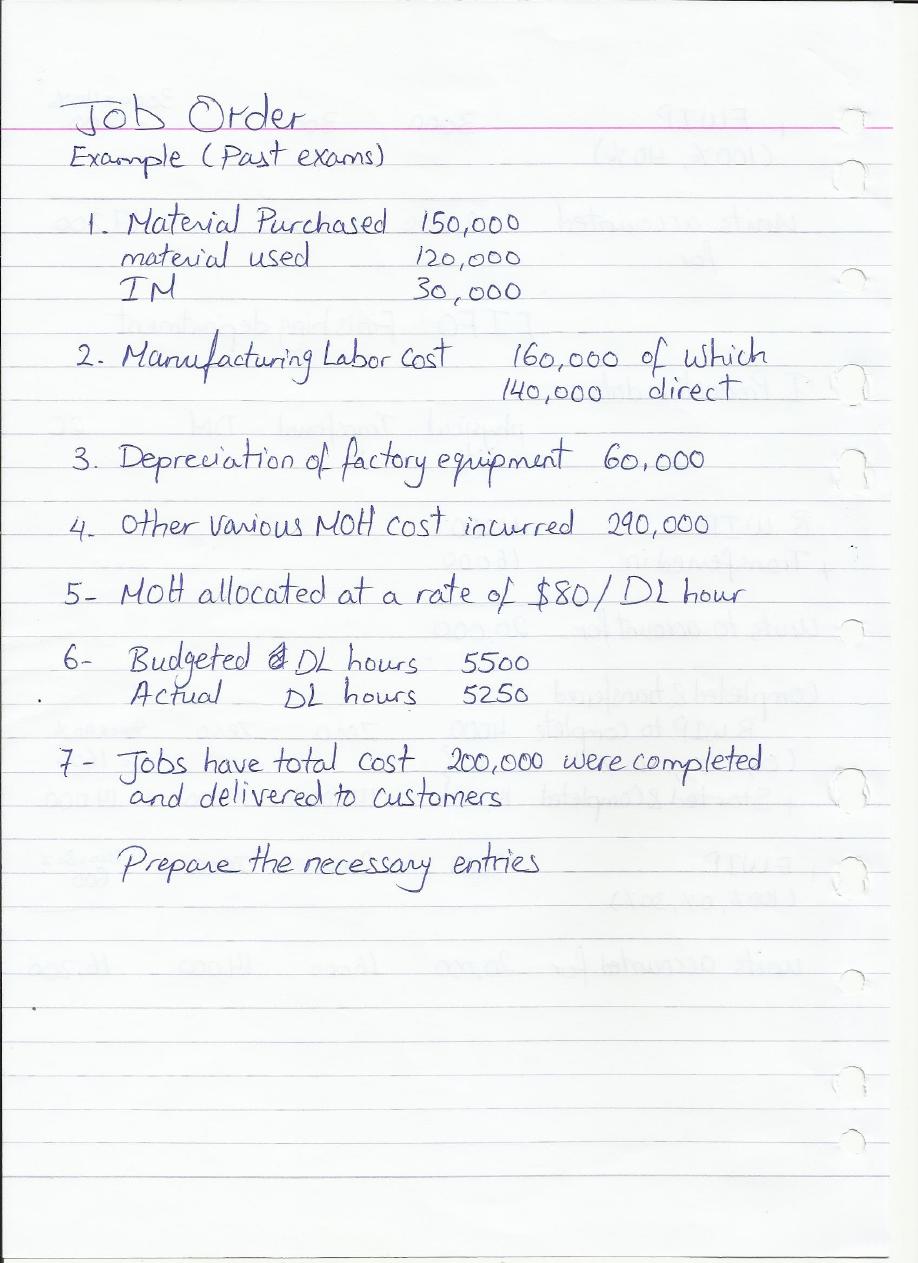 Job Order
Example (Past exams)
1. Material Purchased 150,000
material used 120,000
IM 30,000
2. Manufacturing Labor cost 160,000 of which
140,000 direct
3. Depreciation of factory equipment 60,000
4. Other various MOH cost incurred 290,000
5- MOH allocated at a rate of $80/DL hour
6- Budgeted DL hours 5500
Actual DL hours 5250
7- Jobs have total cost 200,000 were completed
and delivered to customers
Prepare the necessary entries